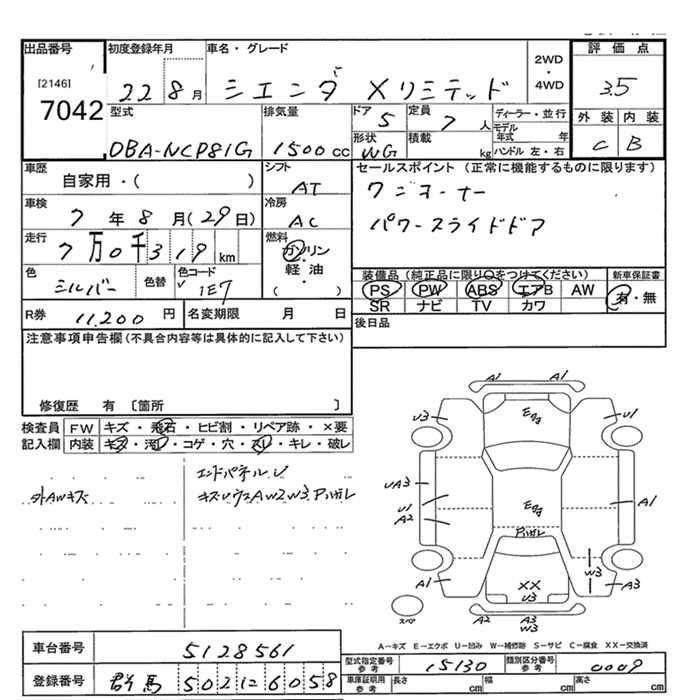 出品番号 初度登録年月 車名・グレード 2WD・4WD 評価点
[2146]
7042 22 8月 シエンタ Xリミテッド 3.5
型式 排気量 ドア 5 定員 7人 ディーラー・並行 外装 内装
DBA-NCP81G 1500cc 形状 WG 積載 kg モデル年式 年 ハンドル 左・右 C B
車歴 シフト セールスポイント (正常に機能するものに限ります)
自家用・( ) AT ワンオーナー
車検 冷房 パワースライドドア
7年8月(29日) AC
走行 燃料
7万0千319km ガソリン・軽油
色 色替 色コード ( ) 装備品(純正品に限り○をつけてください) 新車保証書
シルバー 1E7 PS PW ABS エアB AW 有・無
SR ナビ TV カワ
R券 11,200円 名変期限 月 日 後日品
注意事項申告欄(不具合内容等は具体的に記入して下さい)
修復歴 有〔箇所 〕
検査員 FW キズ・飛石・ヒビ割・リペア跡・×要
記入欄 内装 キズ・汚レ・コゲ・穴・スレ・キレ・破レ
エンドパネルU
外AWキズ
A1 A1
U3 Egg U1
UA3 Egg A1
U1
A2
W3
A1 XX A3
U3
スペア A2 A3
W3
A-キズ E-エクボ U-凹み W-補修跡 S-サビ C-腐食 XX-交換済
車台番号 5128561
型式指定番号 参考 15130 類別区分番号 参考 0009
登録番号 群馬 502 6058
車庫証明用 参考 長さ cm 幅 cm 高さ cm